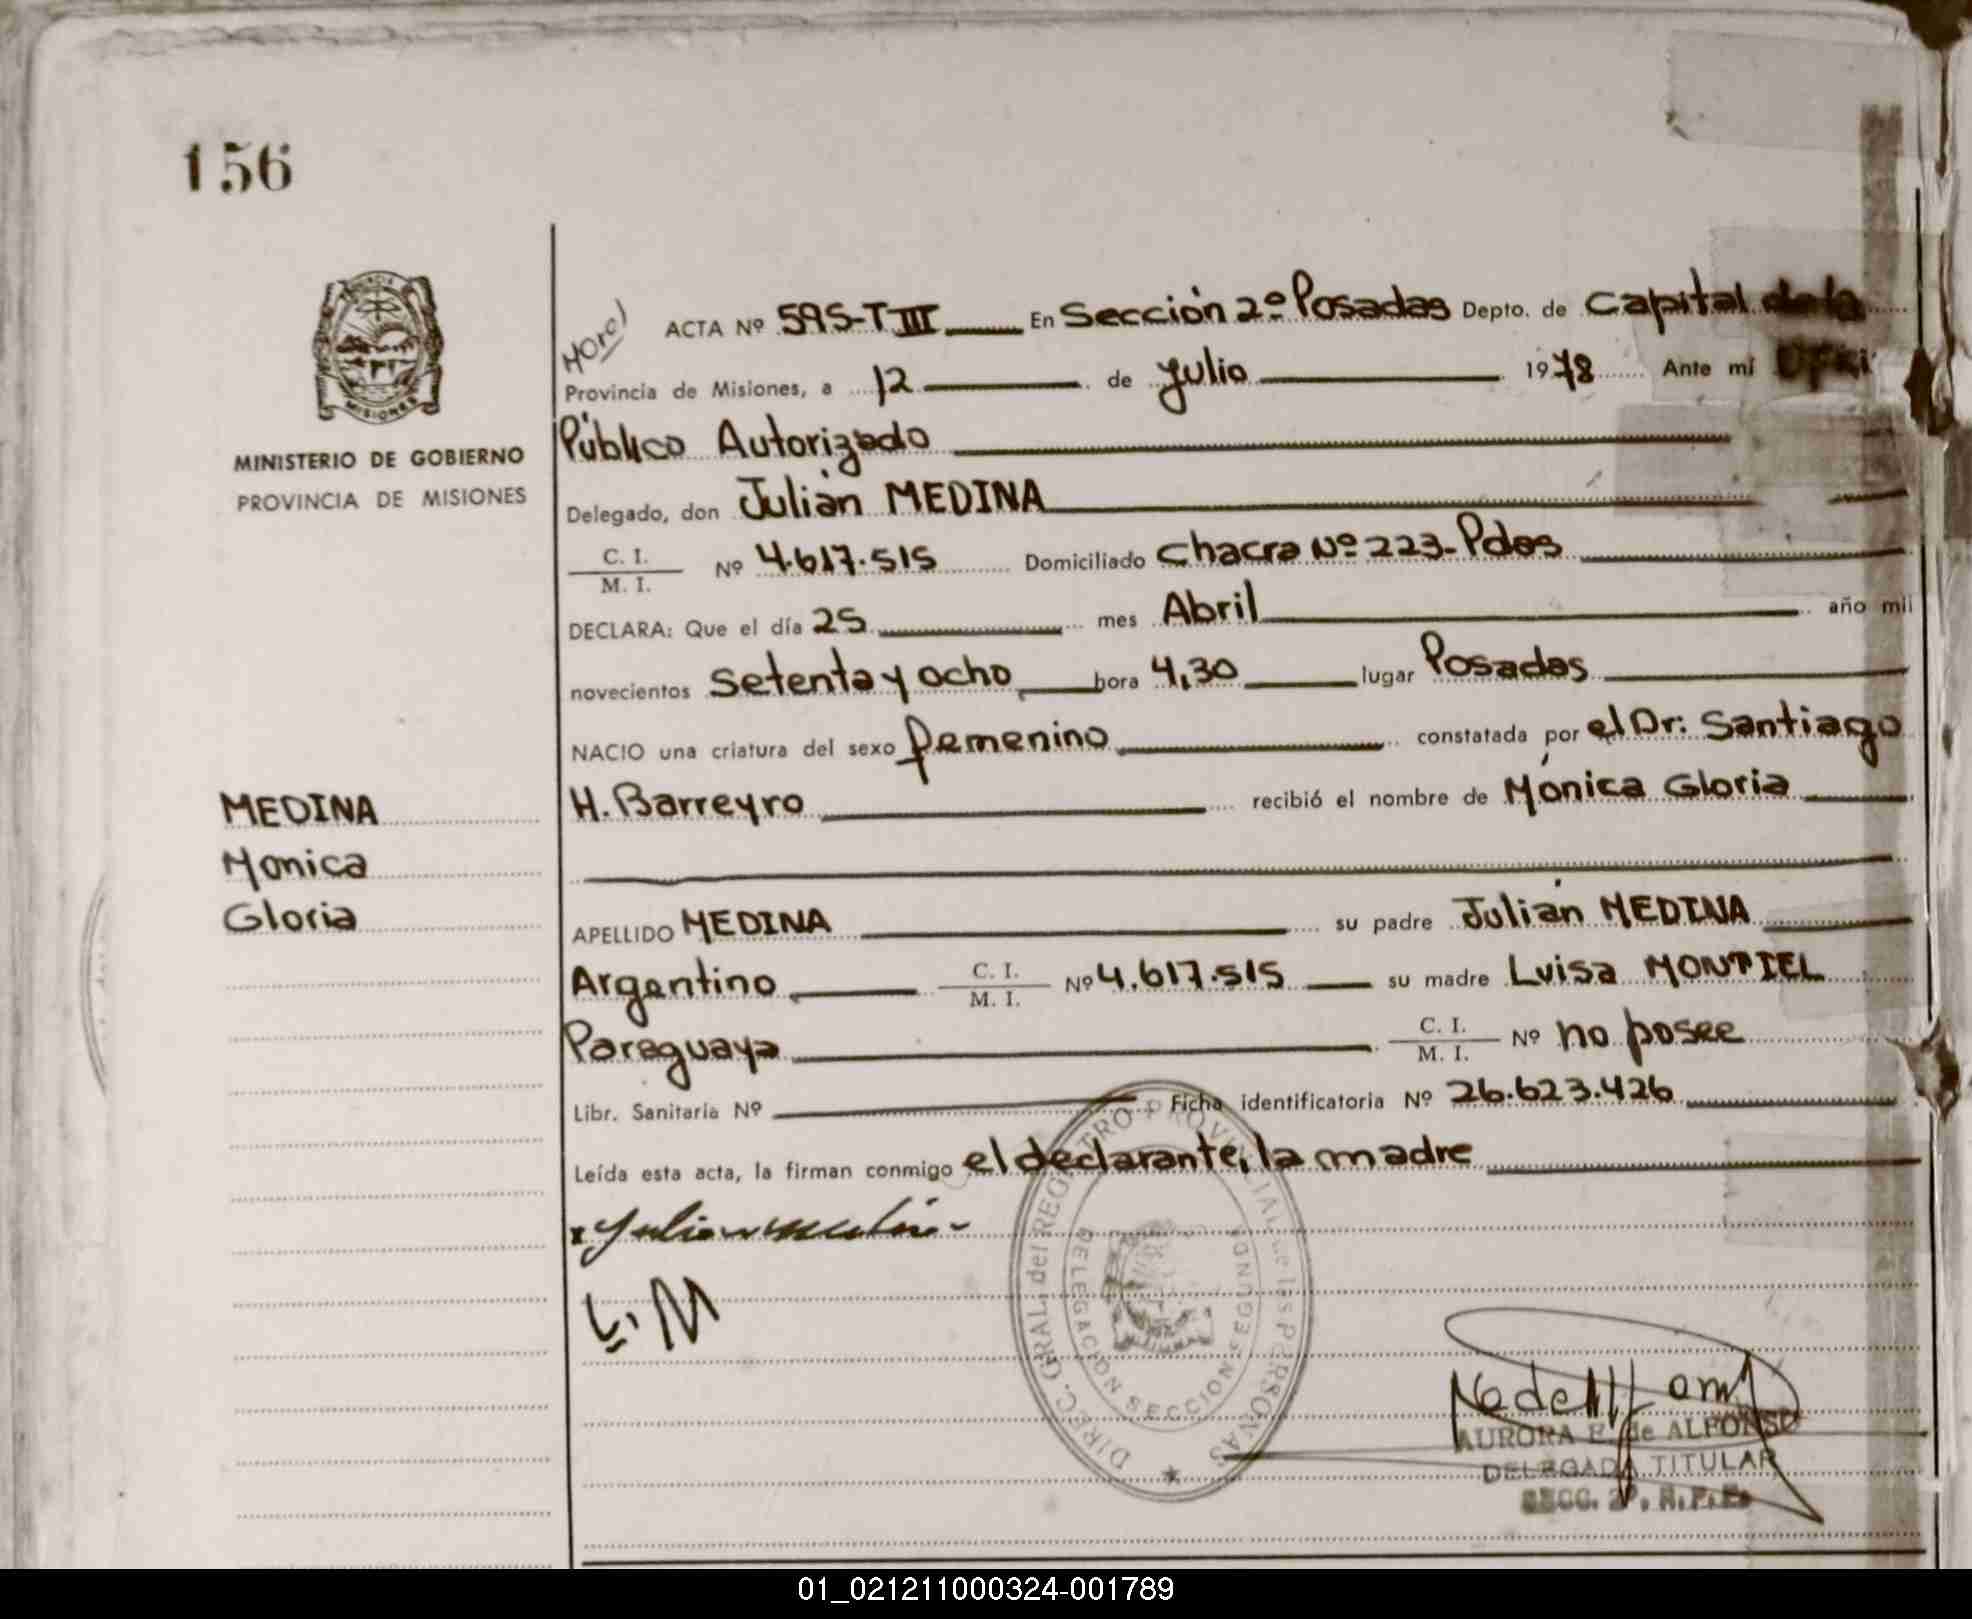 156
ACTA Nº 595-T III En Sección 2º Posadas Depto. de Capital de la
Provincia de Misiones, a 12 de Julio 1978 Ante mí Ofici
Público Autorizado
MINISTERIO DE GOBIERNO
PROVINCIA DE MISIONES
Delegado, don Julián MEDINA
C. I.
M. I. Nº 4.617.515 Domiciliado Chacra Nº 223-Pdas
DECLARA: Que el día 25 mes Abril año mil
novecientos setenta y ocho hora 4,30 lugar Posadas
NACIO una criatura del sexo femenino constatada por el Dr: Santiago
H. Barreyro recibió el nombre de Mónica Gloria
MEDINA
Monica
Gloria
APELLIDO MEDINA su padre Julián MEDINA
Argentino C. I. M. I. Nº 4.617.515 su madre Luisa MONTIEL
Paraguaya C. I. M. I. Nº no posee
Libr. Sanitaria Nº Ficha identificatoria Nº 26.623.426
Leída esta acta, la firman conmigo el declarante, la madre
Julian Medina
L. M
DIREC. GRAL. del REGISTRO PROVINCIAL de las PERSONAS
DELEGACION SECCION SEGUNDA
AURORA E. de ALFONSO
DELEGADA TITULAR
SECC. 2ª. R.P.P.
MISIONES
01_021211000324-001789